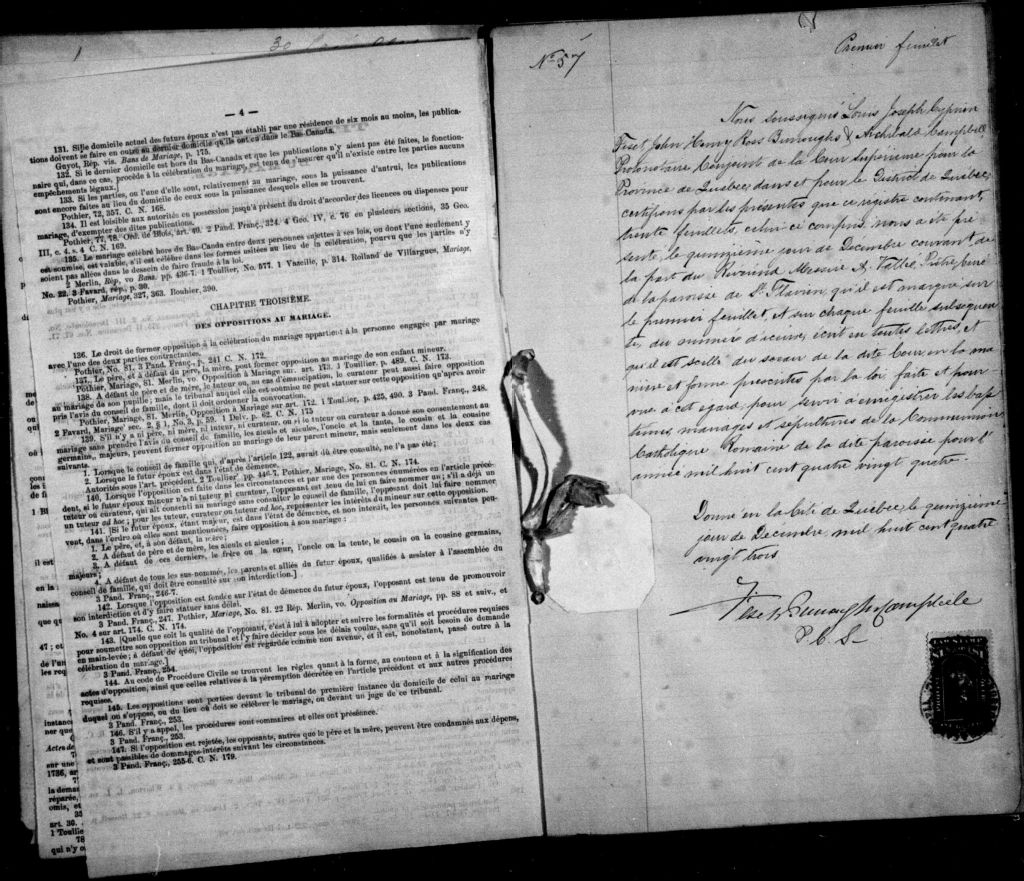 — 4 —
131. Si le domicile actuel des futurs époux n'est pas établi par une résidence de six mois au moins, les publica-
tions doivent se faire en outre au dernier domicile qu'ils ont eu dans le Bas-Canada.
Guyot, Rép. vis. Bans de Mariage, p. 175.
132. Si le dernier domicile est hors du Bas-Canada et que les publications n'y aient pas été faites, le fonction-
naire qui, dans ce cas, procède à la célébration du mariage, est tenu de s'assurer qu'il n'existe entre les parties aucuns
empêchements légaux.]
133. Si les parties, ou l'une d'elles, sont, relativement au mariage, sous la puissance d'autrui, les publications
sont encore faites au lieu du domicile de ceux sous la puissance desquels elles se trouvent.
Pothier, 72, 357. C. N. 168.
134. Il est loisible aux autorités en possession jusqu'à présent du droit d'accorder des licences ou dispenses pour
mariage, d'exempter des dites publications.
Pothier, 77, 78. Ord. de Blois, art. 40. 2 Pand. Franç., 324. 4 Geo. IV, c. 76 en plusieurs sections, 35 Geo.
III, c. 4. s. 4 C. N. 169.
135. Le mariage célébré hors du Bas-Canada entre deux personnes sujettes à ses lois, ou dont l'une seulement y
est soumise, est valable, s'il est célébré dans les formes usitées au lieu de la célébration, pourvu que les parties n'y
soient pas allées dans le dessein de faire fraude à la loi.
2 Merlin, Rép, vo Bans, pp. 436-7. 1 Toullier, No. 577. 1 Vazeille, p. 314. Rolland de Villargues, Mariage,
No. 22. 3 Favard, rép., p. 30.
Pothier, Mariage, 327, 363. Bouhier, 390.
CHAPITRE TROISIÈME.
DES OPPOSITIONS AU MARIAGE.
136. Le droit de former opposition à la célébration du mariage appartient à la personne engagée par mariage
avec l'une des deux parties contractantes.
Pothier, No. 81. 3 Pand. Franç., p. 241 C. N. 172.
137. Le père, et à défaut du père, la mère, peut former opposition au mariage de son enfant mineur.
Pothier, Mariage, 81. Merlin, vo. Opposition à Mariage sur. art. 173. 1 Toullier, p. 489. C. N. 173.
138. A défaut de père et de mère, le tuteur ou, au cas d'émancipation, le curateur peut aussi faire opposition
au mariage de son pupille; mais le tribunal auquel elle est soumise ne peut statuer sur cette opposition qu'après avoir
pris l'avis du conseil de famille, dont il doit ordonner la convocation.
Pothier, Mariage, 81. Merlin, Opposition à Mariage sur art. 172. 1 Toullier, p. 425, 490. 3 Pand. Franç., 248.
2 Favard, Mariage sec. 2, § 1, No. 3, p. 59. 1 Delv. p. 62. C. N. 175
139. S'il n'y a ni père, ni mère, ni tuteur, ni curateur, ou si le tuteur ou curateur a donné son consentement au
mariage sans prendre l'avis du conseil de famille, les aïeuls et aïeules, l'oncle et la tante, le cousin et la cousine
germains, majeurs, peuvent former opposition au mariage de leur parent mineur, mais seulement dans les deux cas
suivants:
1. Lorsque le conseil de famille qui, d'après l'article 122, aurait dû être consulté, ne l'a pas été;
2. Lorsque le futur époux est dans l'état de démence.
Autorités sous l'art. précédent. 2 Toullier, pp. 446-7. Pothier, Mariage, No. 81. C. N. 174.
140. Lorsque l'opposition est faite dans les circonstances et par une des personnes énumérées en l'article précé-
dent, si le futur époux mineur n'a ni tuteur ni curateur, l'opposant est tenu de lui en faire nommer un; s'il a déjà un
tuteur ou curateur, qui ait consenti au mariage sans consulter le conseil de famille, l'opposant doit lui faire nommer
un tuteur ad hoc; pour les tuteur, curateur ou tuteur ad hoc, représenter les intérêts du mineur sur cette opposition.
141. [Si le futur époux, étant majeur, est dans l'état de démence, et non interdit, les personnes suivantes peu-
vent, dans l'ordre où elles sont mentionnées, faire opposition à son mariage:
1. Le père, et, à son défaut, la mère;
2. A défaut de père et de mère, les aïeuls et aïeules;
3. A défaut de ces derniers, le frère ou la sœur, l'oncle ou la tente, le cousin ou la cousine germains,
majeurs;
4. A défaut de tous les sus-nommés, les parents et alliés du futur époux, qualifiés à assister à l'assemblée du
conseil de famille, qui doit être consulté sur son interdiction.]
3 Pand. Franç., 246-7.
142. Lorsque l'opposition est fondée sur l'état de démence du futur époux, l'opposant est tenu de promouvoir
son interdiction et d'y faire statuer sans délai.
3 Pand. Franç., 247. Pothier, Mariage, No. 81. 22 Rép. Merlin, vo. Opposition au Mariage, pp. 88 et suiv., et
No. 4 sur art. 174. C. N. 174.
143. [Quelle que soit la qualité de l'opposant, c'est à lui à adopter et suivre les formalités et procédures requises
pour soumettre son opposition au tribunal et l'y faire décider sous les délais voulus, sans qu'il soit besoin de demande
en main-levée; à défaut de quoi, l'opposition est regardée comme non avenue, et il est, nonobstant, passé outre à la
célébration du mariage.]
3 Pand. Franç., 254.
144. Au code de Procédure Civile se trouvent les règles quant à la forme, au contenu et à la signification des
actes d'opposition, ainsi que celles relatives à la péremption décrétée en l'article précédent et aux autres procédures
requises.
145. Les oppositions sont portées devant le tribunal de première instance du domicile de celui au mariage
duquel on s'oppose, ou du lieu où doit se célébrer le mariage, ou devant un juge de ce tribunal.
3 Pand. Franç., 253.
146. S'il y a appel, les procédures sont sommaires et elles ont préséence.
3 Pand. Franç., 253.
147. Si l'opposition est rejetée, les opposants, autres que le père et la mère, peuvent être condamnés aux dépens,
et sont passibles de dommages-intérêts suivant les circonstances.
3 Pand. Franç., 255-6. C. N. 179.
No 57
Premier feuillet
Nous soussignés Louis Joseph Cyprien
Fiset, John Henry Ross Burroughs & Archibald Campbell
Protonotaire Conjoint de la Cour Supérieure pour la
Province de Québec, dans et pour le District de Québec,
certifions par les présentes que ce registre contenant
trente feuillets, celui ci compris, nous a été pré
senté, le quinzième jour de Décembre courant de
la part du Révérend Messire A. Vallée Prêtre, Curé
de la paroisse de St Flavien, qu'il est marqué sur
le premier feuillet, et sur chaque feuille subséquen
te, du numéro d'icelui, écrit en toutes lettres, et
qu'il est scellé du sceau de la dite Cour en la ma
nière et forme prescrites par la loi, faite et pour-
vue à cet égard, pour servir à enregistrer les bap
têmes, mariages et sépultures de la Communion
Catholique Romaine de la dite paroisse pour l'
année mil huit cent quatre vingt quatre.
Donné en la Cité de Québec, le quinzième
jour de Décembre mil huit cent quatre
vingt trois
Fiset Burroughs Campbell
P. C. S.